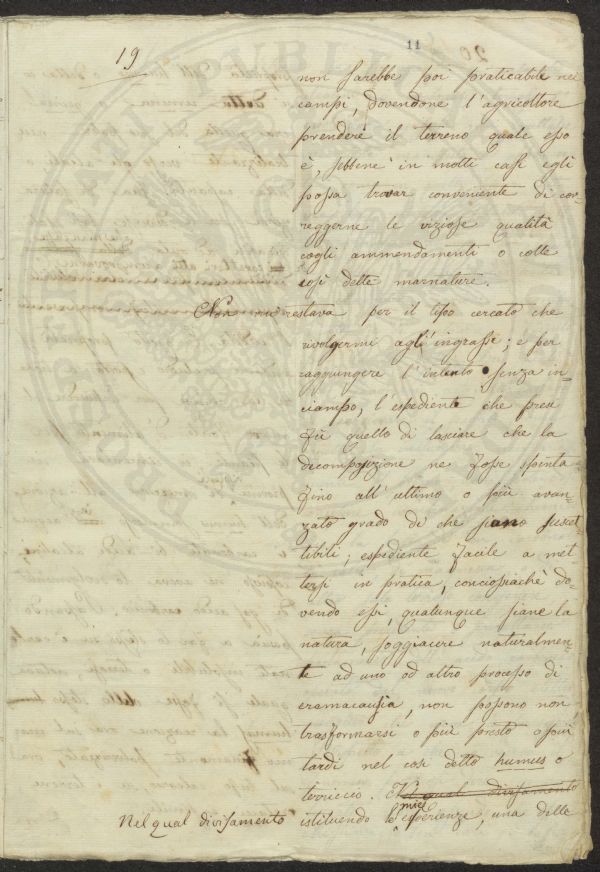 19
11
non sarebbe poi praticabile nei
campi, dovendone l'agricoltore
prendere il terreno quale esso
è, sebbene in molti casi egli
possa trovar conveniente di cor-
reggerne le viziose qualità
cogli ammendamenti o colle
così dette marnature.
Non mi restava per il tipo cercato che
rivolgermi agl'ingrassi; e per
raggiungere l'intento senza in-
ciampo, l'espediente che presi
fù quello di lasciare che la
decomposizione ne fosse spinta
fino all'ultimo o più avan-
zato grado di che siano suscet-
tibili; espediente facile a met
tersi in pratica, conciosiachè do-
vendo essi, qualunque siane la
natura, soggiacere naturalmen-
te ad uno od altro processo di
eramacausia, non possono non
trasformarsi o più presto o più
tardi nel così detto humus o
terriccio. Nel qual divisamento
Nel qual divisamento istituendo le mie esperienze, una delle